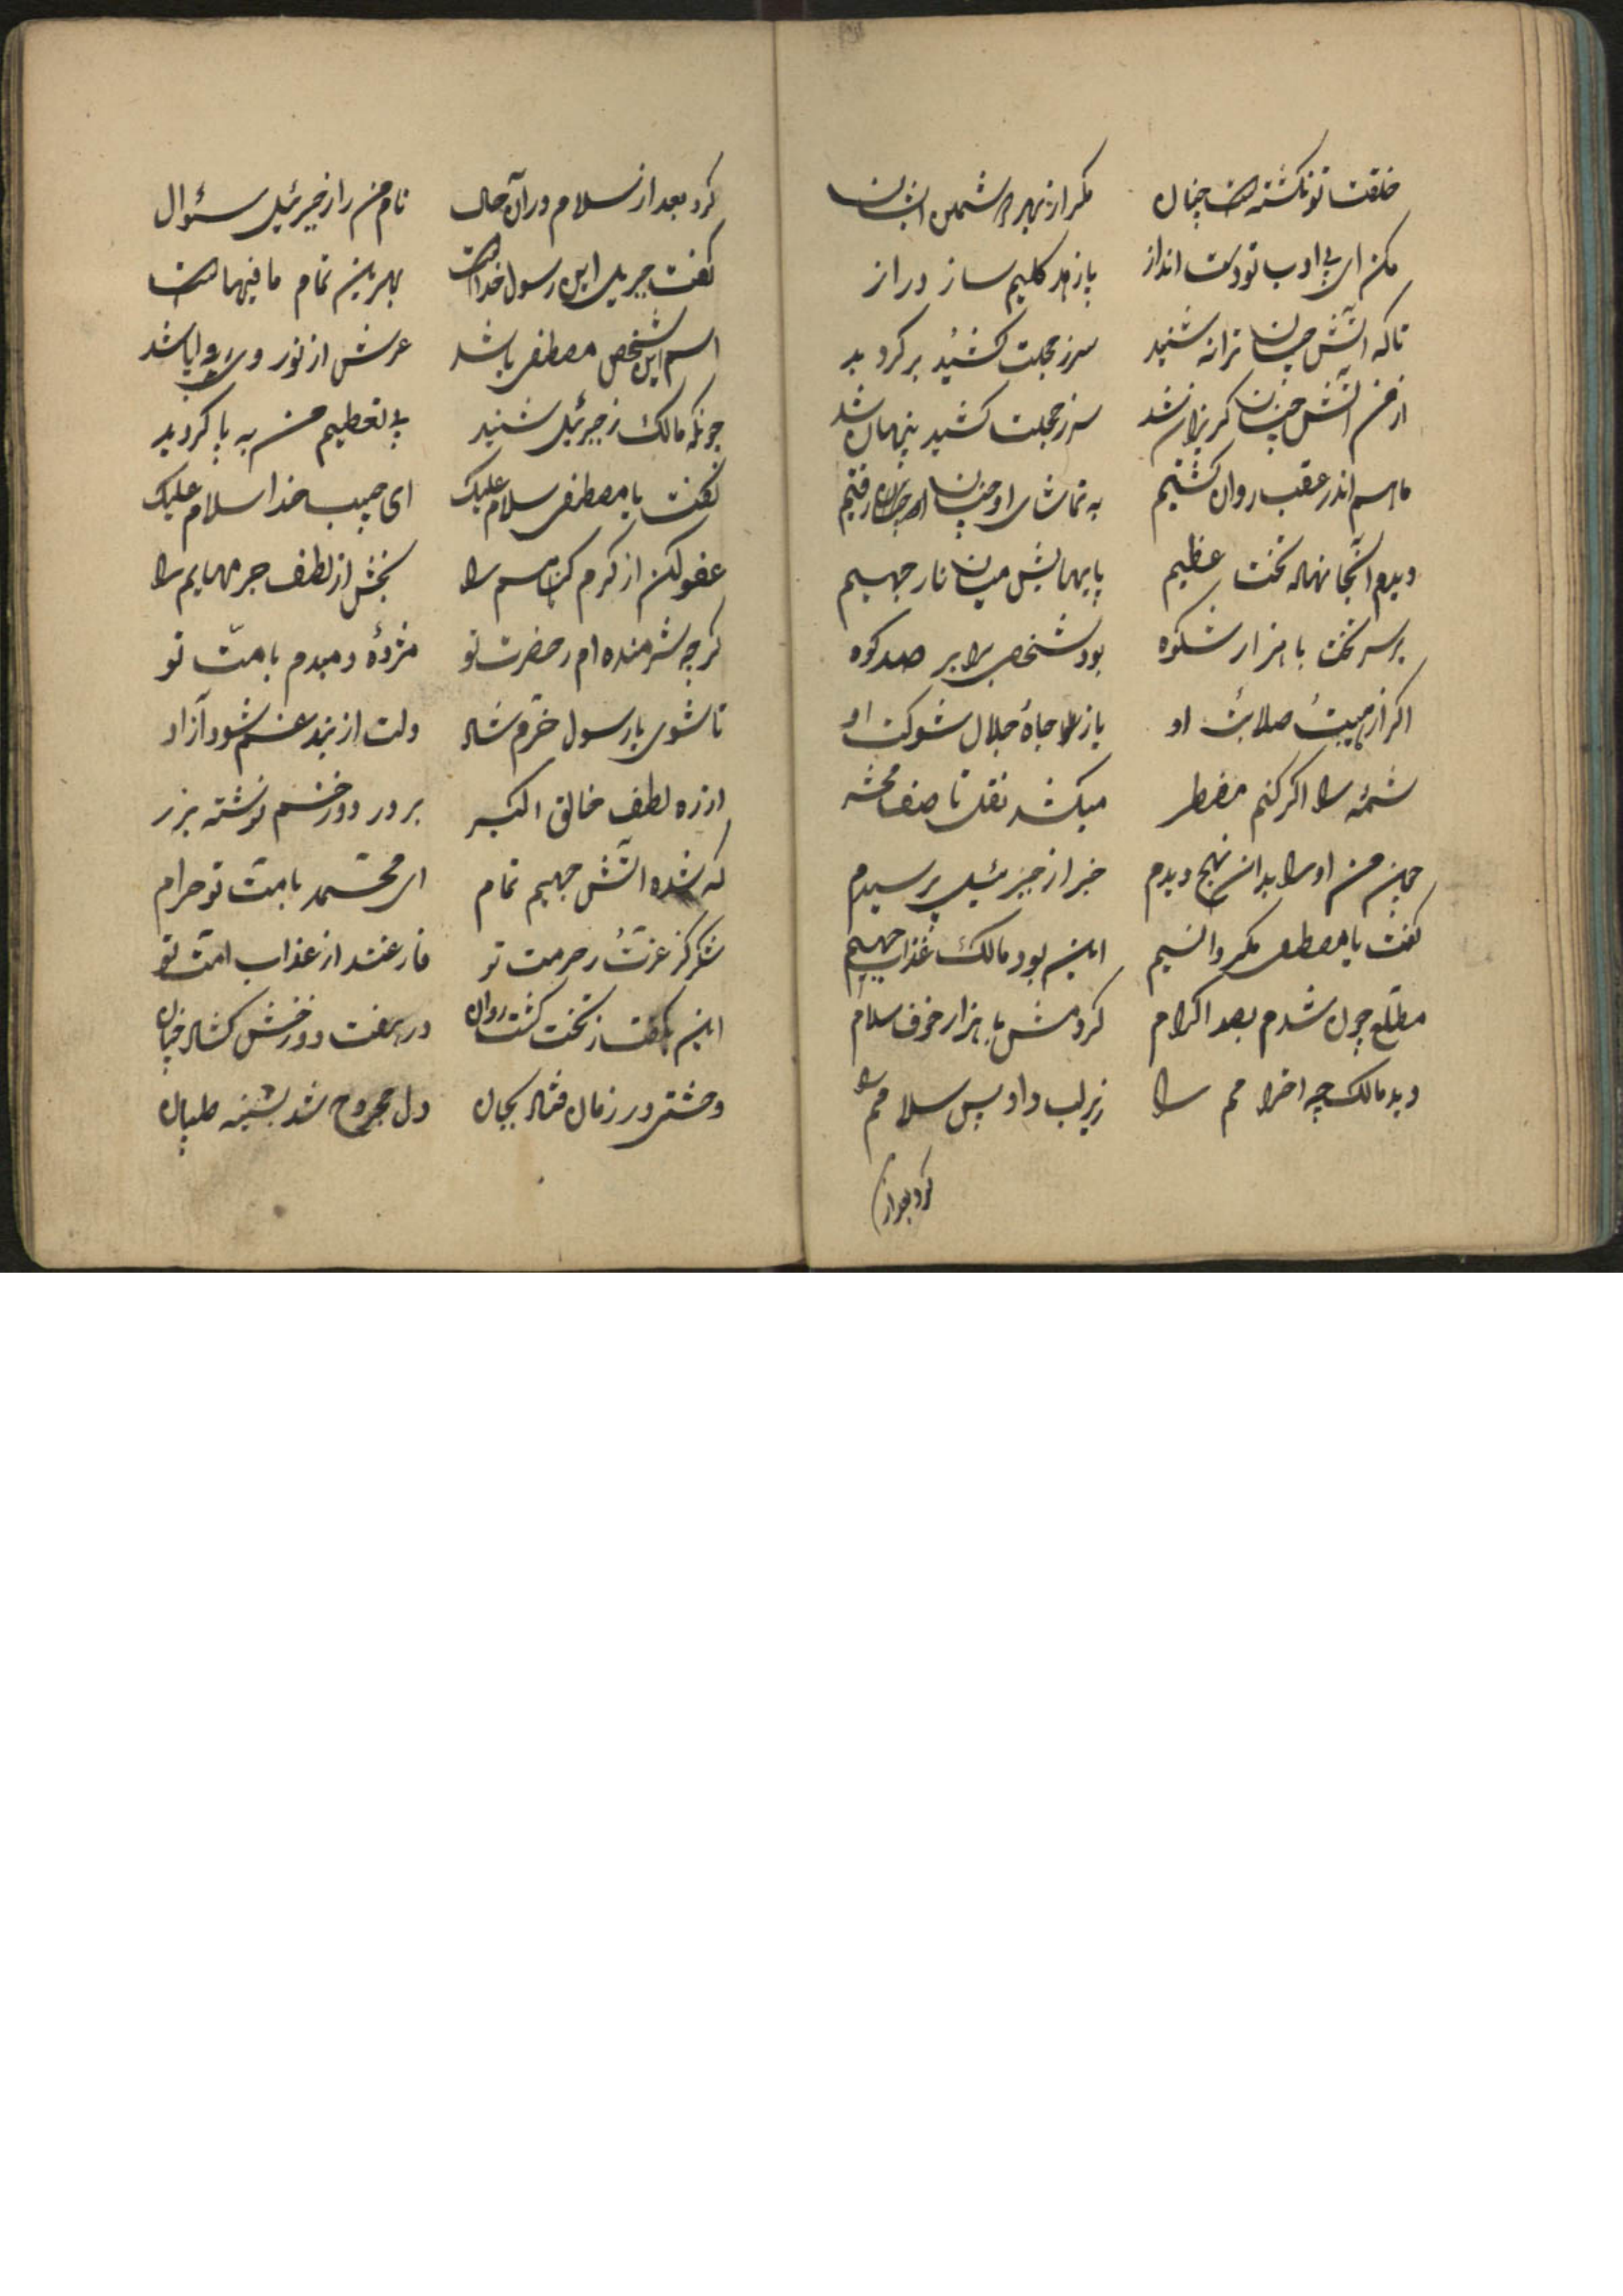 خلقت تو نکشته است چنان مکر از بهر دشمن انسان
مکن ای بی ادب تو دست انداز پا ز حد کلیم ساز دراز
تا که آتش چنان ترانه شنید سر ز خجلت کشید بر کردید
از من آتش چنان کریزان شد سر ز خجلت کشید پنهان شد
ما هم اندر عقب روان کشتیم به تماشای او چنان رفتیم
دیدم آنجا نهاله تخت عظیم پایهایش میان نار جهیم
بر سر تخت با هزار شکوه بود شخصی برابر صد کوه
اکر از هیبت صلابت او یا ز جاه جلال شوکت او
شمهٔ را اکر کنم مضطر میکشد نقل تا صف محشر
چون من او را بدان نهج دیدم خبر از جبرئیل پرسیدم
کفت یا مصطفی مکر دانسیم این بود مالک عذاب جهیم
مطلع چون شدم بصد اکرام کردمش با هزار خوف سلام
دید مالک چه احترامم را زیر لب داد پس سلامم را
کرد بعد از
کرد بعد از سلام در آن حال نام من را ز جبرئیل سئوال
کفت جبریل این رسول خداست بهرین تمام ما فیهاست
اسم این شخص مصطفی باشد عرش از نور وی بپا باشد
چونکه مالک ز جبرئیل شنید پی تعظیم من به پا کردید
کفت یا مصطفی سلام علیک ای حبیب خدا سلام علیک
عفو کن از کرم کناهم را بخش از لطف جرمهایم را
کرچه شرمنده ام ز حضرت تو مژدهٔ میدم بامت تو
تا شوی یا رسول خرم شاد دلت از بند غم شود آزاد
از ره لطف خالق اکبر بر در دوزخم نوشته بزر
که شده آتش جهیم تمام ای محمد بامت تو حرام
شکر کز عزت و حرمت تو فارغند از عذاب امت تو
این بکفت ز تخت کشت روان در هفت دوزخش کشاد چنان
وحشتی در زمان فتاد بجان دل مجروح شد بسینه طپان